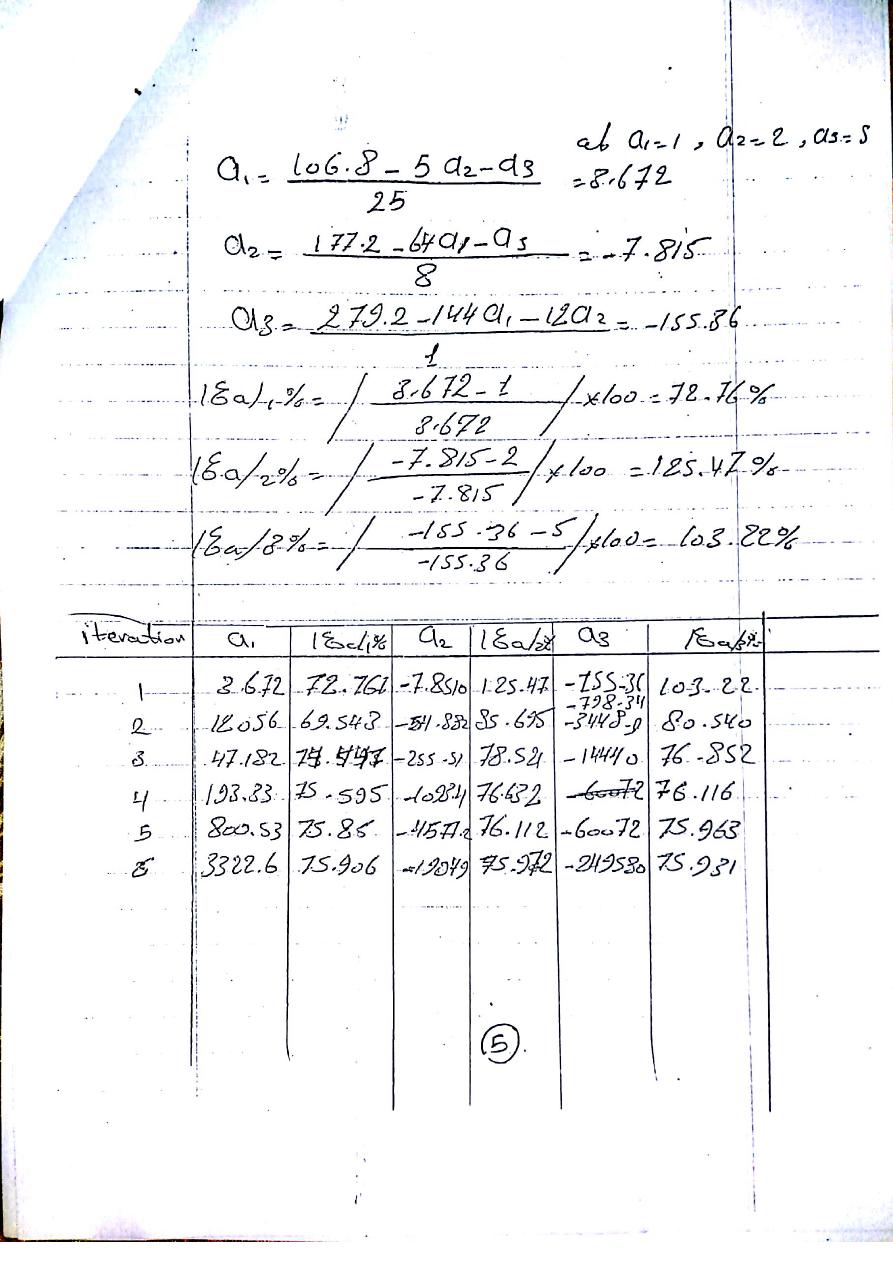 at a1=1, a2=2, a3=5
a1 = 106.8 - 5 a2 - a3 / 25 = 3.672
a2 = 177.2 - 64 a1 - a3 / 8 = -7.815
a3 = 279.2 - 144 a1 - 12 a2 / 1 = -155.36
|Ea|1% = | 3.672 - 1 / 3.672 | x100 = 72.76%
|Ea|2% = | -7.815 - 2 / -7.815 | x100 = 125.47%
|Ea|3% = | -155.36 - 5 / -155.36 | x100 = 103.22%
iteration a1 |Ea|1% a2 |Ea|2% a3 |Ea|3%
1 3.672 72.761 -7.8510 125.47 -155.36 103.22
-798.34
2 12.056 69.543 85.695 80.540
3 47.182 -255.51 78.521 -14440 76.852
4 193.33 75.595 76.632 -60072 76.116
5 800.53 75.85 -4577.2 76.112 -60072 75.963
6 3322.6 75.906 -19049 75.972 -249580 75.931
5